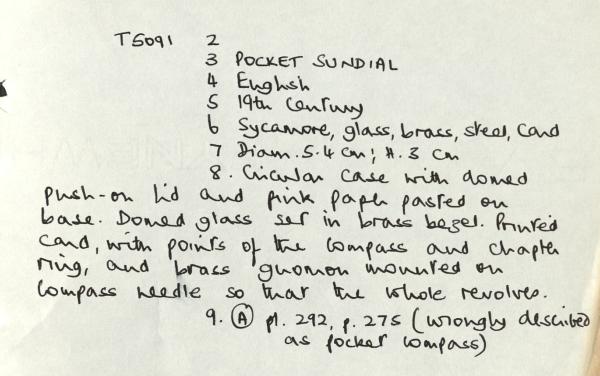 T5091 2
3 POCKET SUNDIAL
4 English
5 19th Century
6 Sycamore, glass, brass, steel, card
7 Diam. 5.4 cm; H. 3 cm
8. Circular case with domed
push-on lid and pink paper pasted on
base. Domed glass set in brass bezel. Printed
card, with points of the compass and chapter
ring, and brass gnomon mounted on
compass needle so that the whole revolves.
9. (A) pl. 292, p. 275 (wrongly described
as pocket compass)